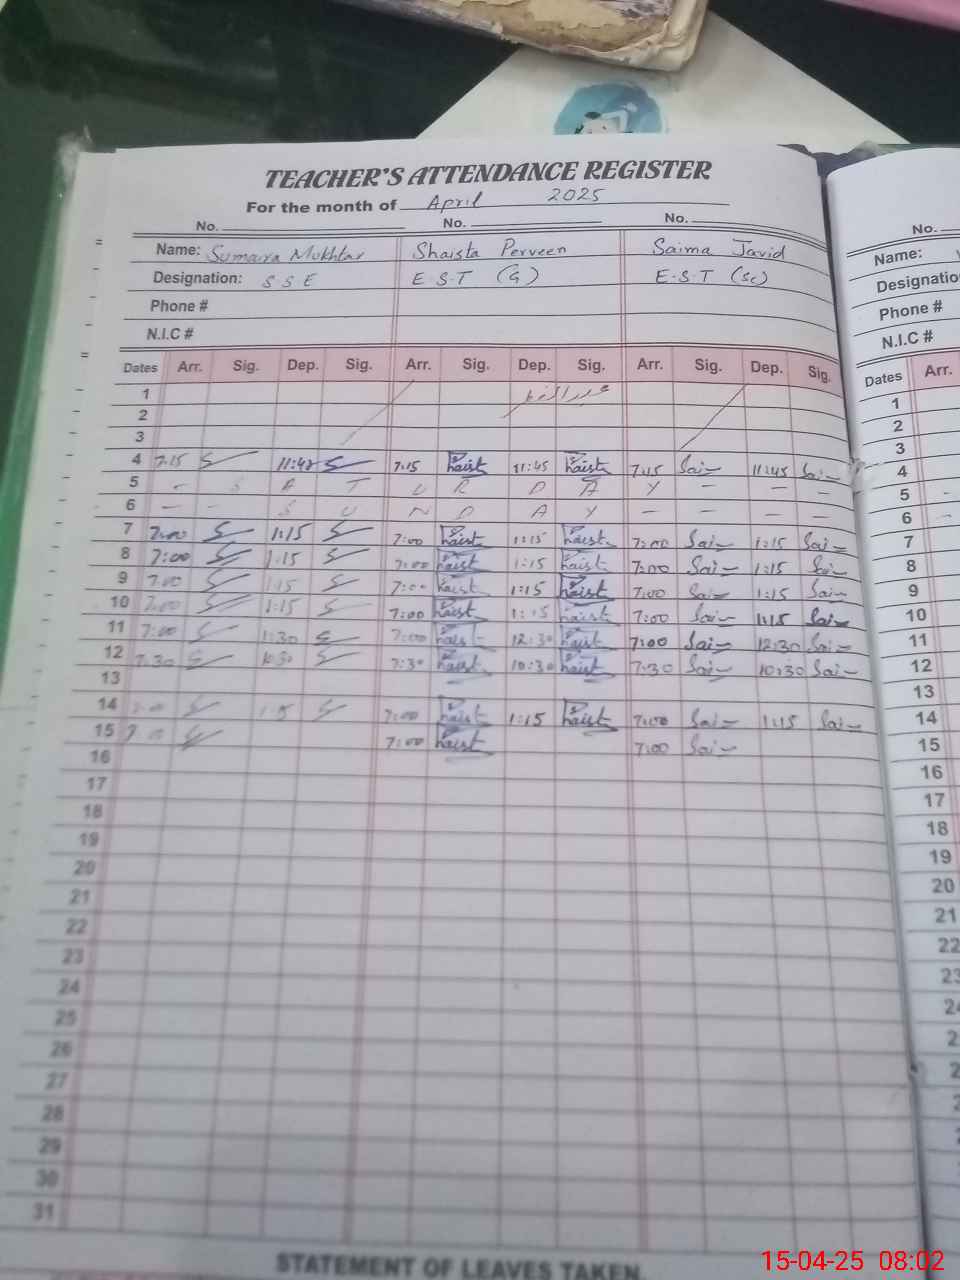 TEACHER'S ATTENDANCE REGISTER
For the month of April 2025
No. No. No.
Name: Sumaira Mukhtar Shaista Perveen Saima Javid
Designation: S S E E.S.T (G) E.S.T (Sc)
Phone #
N.I.C #
Dates Arr. Sig. Dep. Sig. Arr. Sig. Dep. Sig. Arr. Sig. Dep. Sig.
1 عيد الفطر
2
3
4 7:15 11:45 7:15 haist 11:45 haist 7:15 Sai 11:45 Sai
5 - S A T U R D A Y - - -
6 - - S U N D A Y - - - -
7 7:00 1:15 7:00 haist 1:15 haist 7:00 Sai 1:15 Sai
8 7:00 1:15 7:00 haist 1:15 haist 7:00 Sai 1:15 Sai
9 7:00 1:15 7:00 haist 1:15 haist 7:00 Sai 1:15 Sai
10 7:00 1:15 7:00 haist 1:15 haist 7:00 Sai 1:15 Sai
11 7:00 1:30 7:00 haist 12:30 haist 7:00 Sai 12:30 Sai
12 7:30 10:30 7:30 haist 10:30 haist 7:30 Sai 10:30 Sai
13
14 7:00 1:15 7:00 haist 1:15 haist 7:00 Sai 1:15 Sai
15 7:00 7:00 haist 7:00 Sai
16
17
18
19
20
21
22
23
24
25
26
27
28
29
30
31
STATEMENT OF LEAVES TAKEN
No.
Name:
Designatio
Phone #
N.I.C #
Dates Arr.
1
2
3
4
5
6
7
8
9
10
11
12
13
14
15
16
17
18
19
20
21
22
23
15-04-25 08:02